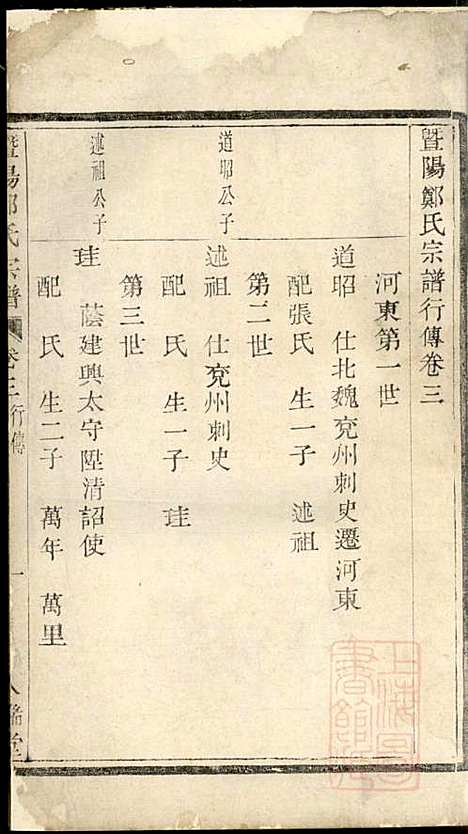 暨陽鄭氏宗譜行傳卷三
河東第一世
道昭 仕北魏兗州刺史遷河東
配張氏 生一子 述祖
第二世
道昭公子
述祖 仕兗州刺史
配 氏 生一子 珪
第三世
述祖公子
珪 蔭建興太守陞清詔使
配 氏 生二子 萬年 萬里
暨陽鄭氏宗譜 卷三行傳 一
上海圖書館藏